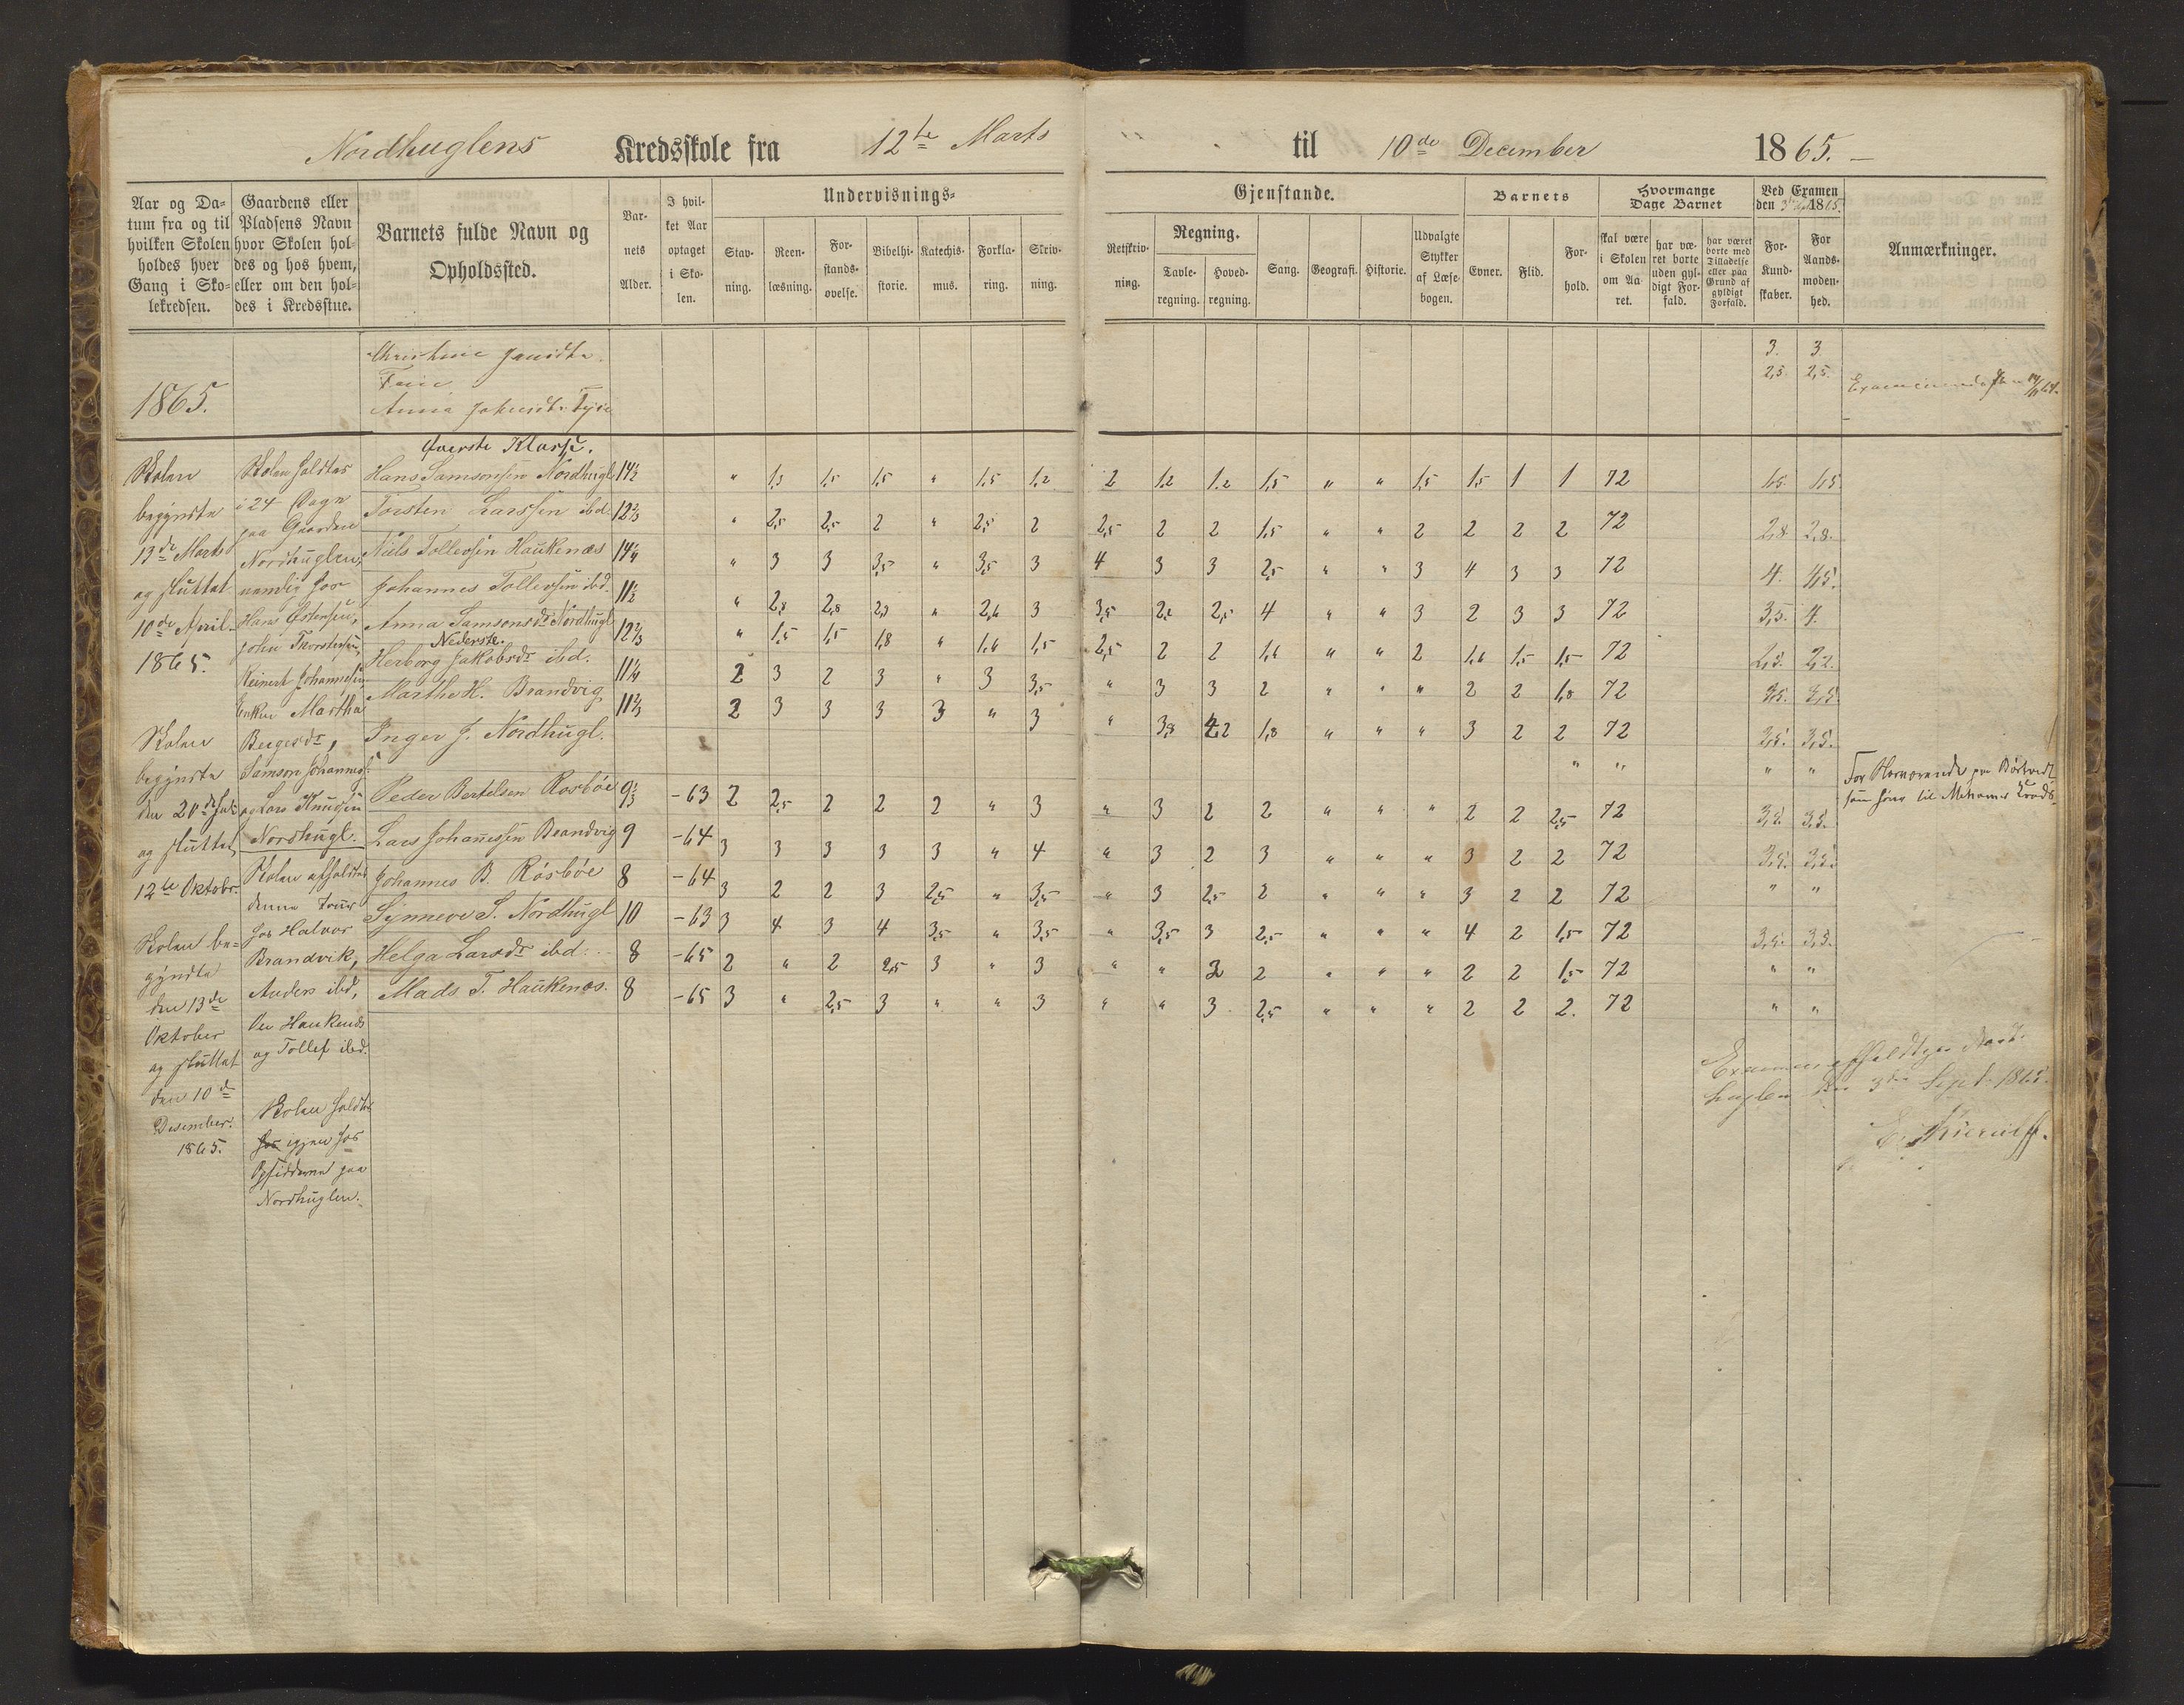 Nordhuglens Kredsskole fra 12te Marts til 10de December 1865.
Aar og Da-
tum fra og til
hvilken Skolen
holdes hver
Gang i Sko-
lekredsen.
Gaardens eller
Pladsens Navn
hvor Skolen hol-
des og hos hvem,
eller om den hol-
des i Kredsstue.
Barnets fulde Navn og
Opholdssted.
Bar-
nets
Alder.
I hvil-
ket Aar
optaget
i Sko-
len.
Undervisnings-
Stav-
ning.
Reen-
læsning.
For-
stands-
øvelse.
Bibelhi-
storie.
Katechis-
mus.
Forkla-
ring.
Skriv-
ning.
Gjenstande.
Retskriv-
ning.
Regning.
Tavle-
regning.
Hoved-
regning.
Sang.
Geografi.
Historie.
Udvalgte
Stykker
af Læse-
bogen.
Barnets
Evner.
Flid.
For-
hold.
Hvormange
Dage Barnet
skal være
i Skolen
om Aa-
ret.
har væ-
ret borte
uden gyl-
digt For-
fald.
har været
borte med
Tilladelse
eller paa
Grund af
gyldigt
Forfald.
Ved Examen
den 3 Sept 1865.
For-
Kund-
skaber.
For
Aands-
moden-
hed.
Anmærkninger.
1865.
Christine 3. 3
2,5. 2,5.
Anna
Øverste Klasse.
Hans Samsonsen Nordhugl 14½ " 1,3 1,5 1,5 " 1,5 1,2 2 1,2 1,2 1,5 " " 1,5 1,5 1 1 72 1,5. 1,5
Torsten Larssen ibd. 12⅔ " 2,5 2,5 2 " 2,5 2 2,5 2 2 1,5 " " 2 2 2 2 72 2,8 2,8.
Niels Tollevsen Haukenæs 14¼ " 3 3 3,5 " 3,5 3 4 3 3 2,5 " " 3 4 3 3 72 4. 4,5.
Johannes Tollevsen ibd. 11½ " 2,8 2,8 2,3 " 2,6 3 3,5 2,2 2,5 4 " " 3 2 3 3 72 3,5. 4.
Anna Samsonsdr Nordhugl 12⅔ " 1,5 1,5 1,8 " 1,6 1,5 2,5 2 2 1,6 " " 2 1,6 1,5 1,5 72 2,3. 2,2.
Nederste.
Herborg Jakobsdr ibd. 11¼ 2 3 2 3 " 3 3,5 " 3 3 2 " " " 2 2 1,8 72 3,5. 3,5
Marthe H. Brandvig 11⅔ 2 3 3 3 3 " 3 " 3,8 2,2 1,8 " " " 3 2 2 72 3,5. 3,5.
Inger J. Nordhugl. " " " "
Peder Bertelsen Rosbøe 9⅔ -63 2 2,5 2 2 2 " 3 " 3 2 2 " " " 2 2 2,5 72 3,2. 3,5.
Lars Johannessen Brandvig 9 -64 3 3 3 3 3 " 4 " 3 2 3 " " " 3 2 2 72 3,5. 3,5.
Johannes B. Rösböe 8 -64 3 2 2 3 2,5 " 3,5 " 3 2,5 2 " " " 3 2 2 72 " "
Synneve S. Nordhugl 10 -63 3 4 3 4 3,5 " 3,5 " 3,5 3 2,5 " " " 4 2 1,5 72 3,5. 3,5.
Helga Larsdr ibd. 8 -65 2 " 2 2,5 3 " 3 " " 3 2 " " " 2 2 1,5 72 " "
Mads T. Haukenæs. 8 -65 3 " 2,5 3 " " 3 " " 3 2,5 " " " 2 2 2. 72 " "
Skolen
begyndte
13de Marts
og sluttet
10de April
1865.
Skolen
begyndte
den 20de
og sluttet
12te Oktobr.
Skolen be-
gyndte
den 13de
Oktober
og sluttet
den 10de
Desember.
1865.
Skolen holdtes
i 24 Dage
paa Gaarden
Nordhuglen,
nemlig hos
Hans Østensen,
John Thorstensen,
Reinert Johannesen,
Enken Martha
Bergesdr,
Samson Johannes.
og Lars Knudsen
Nordhugl.
Skolen afholdtes
denne
hos Halvor
Brandvik,
Anders ibd,
Ole Haukenæs
og Tollef ibd.
Skolen holdtes
hos igjen hos
Opsidderne paa
Nordhuglen.
Examen afholdtes Nord-
huglen den 3die Sept. 1865.